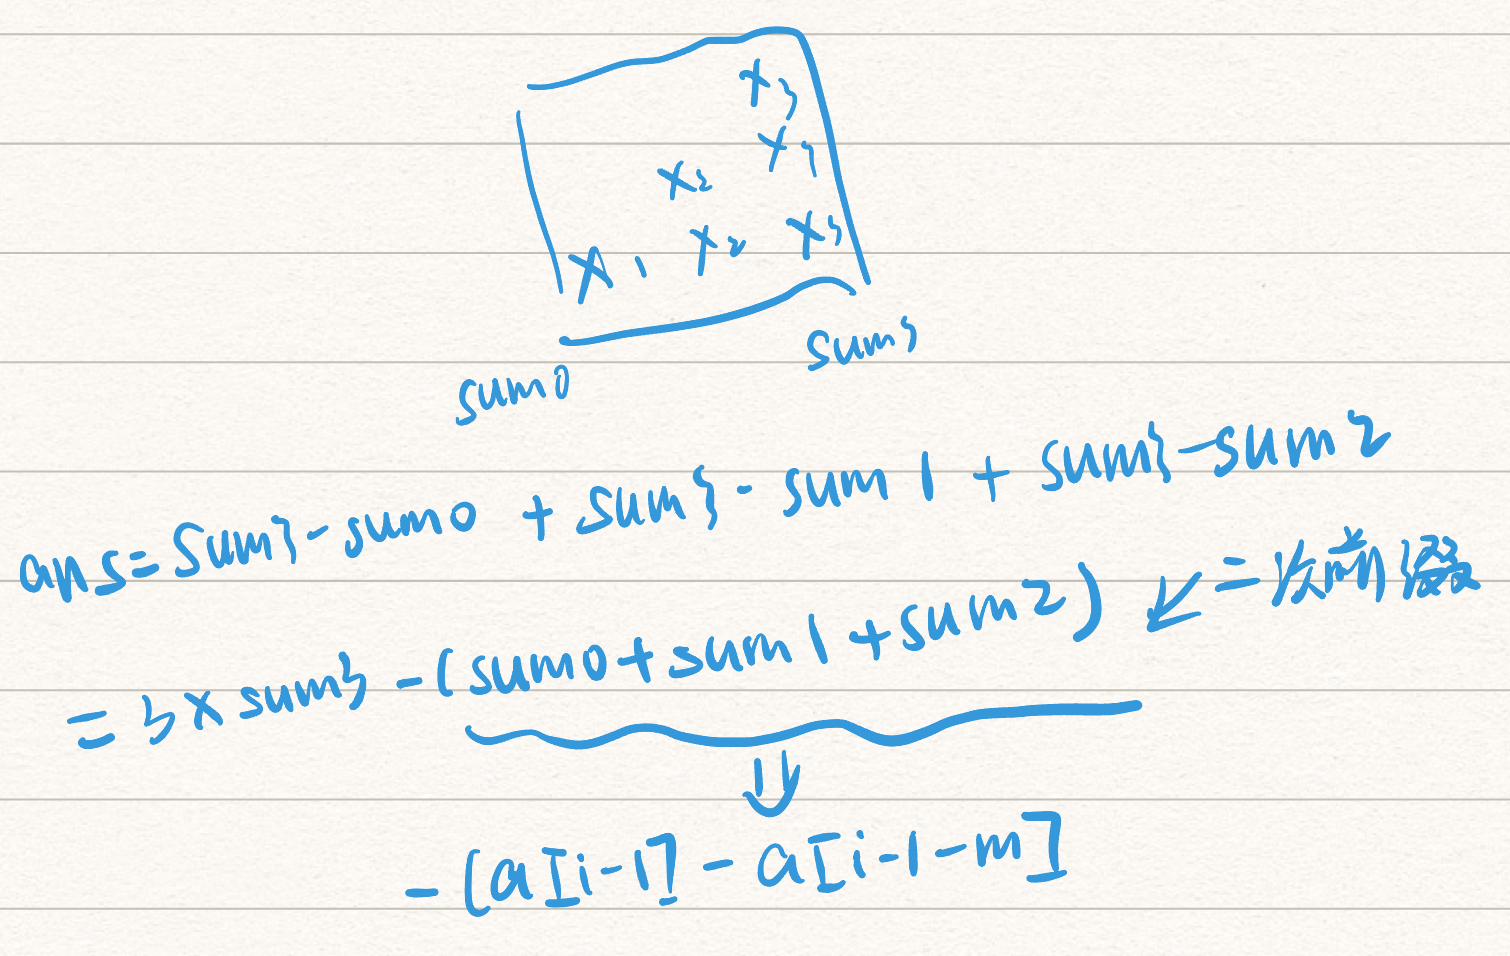 x3
x3
x2
x1 x2 x3
sum3
sum0
ans=sum3-sum0 + sum3-sum1+sum3-sum2
=3×sum3-(sum0+sum1+sum2) ↙二次前缀
⇓
-(a[i-1]-a[i-1-m]